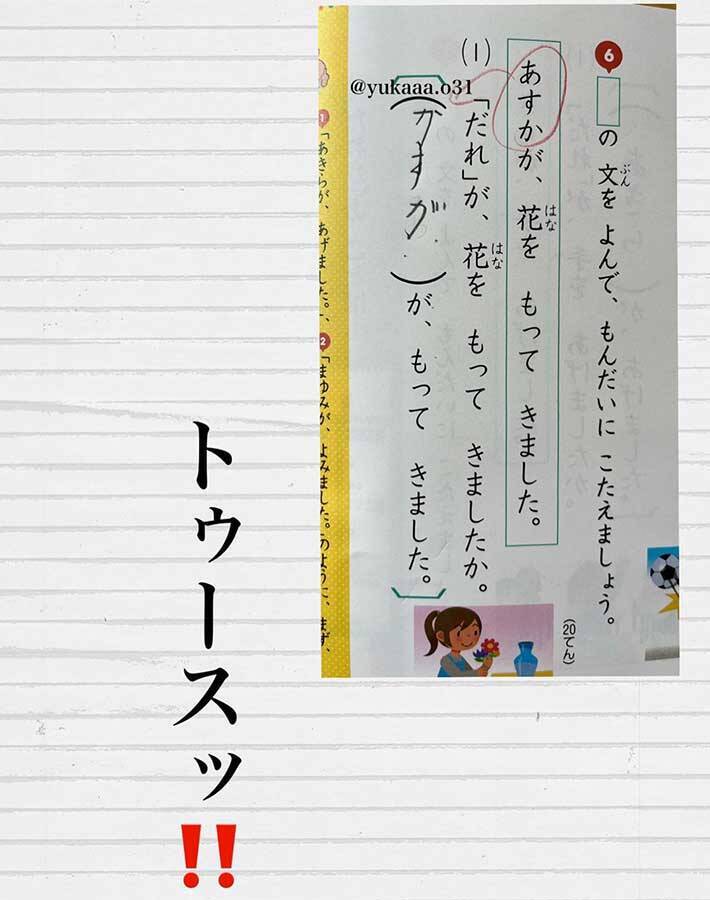 6 の 文を よんで、もんだいに こたえましょう。
ぶん
(20てん)
あすかが、花を もって きました。
はな
(1) 「だれ」が、花を もって きましたか。
はな
@yukaaa.o31
(かすが)が、もって きました。
1 「あきらが、あげました。」、
2 「まゆみが、よみました。」のように、まず、
トゥースッ‼